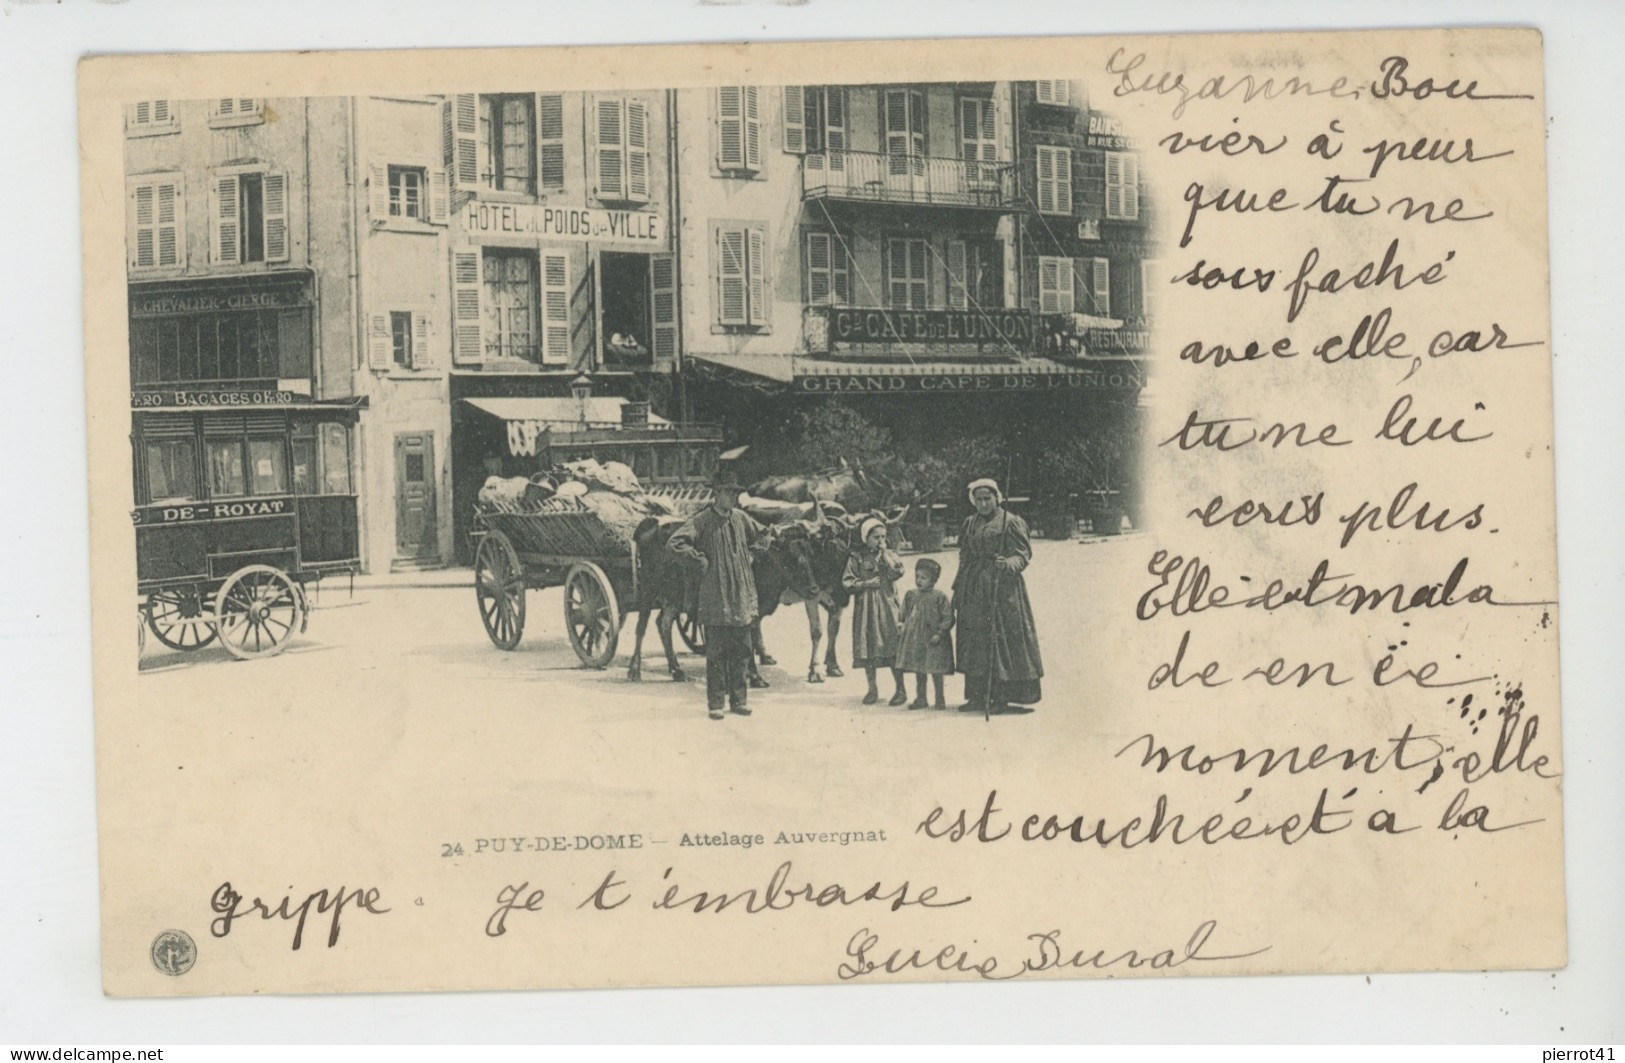 Suzanne Bou
vier à peur
que tu ne
sois faché
avec elle, car
tu ne lui
ecris plus.
Elle est mala
de en ce
moment, elle
est couchée et a la
grippe. Je t'embrasse
Lucie Duval
BAINS
HÔTEL du POIDS de VILLE
CHEVALIER-CIERGE
Gd CAFÉ DE L'UNION
RESTAURANT
GRAND CAFE DE L'UNION
BAGAGES 0Fr20
DE-ROYAT
24 PUY-DE-DOME — Attelage Auvergnat
pierrot41